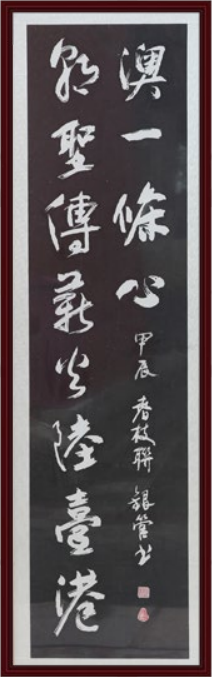 朝聖傳薪火陸臺港
澳一條心
甲辰 香枝聯 銀管書